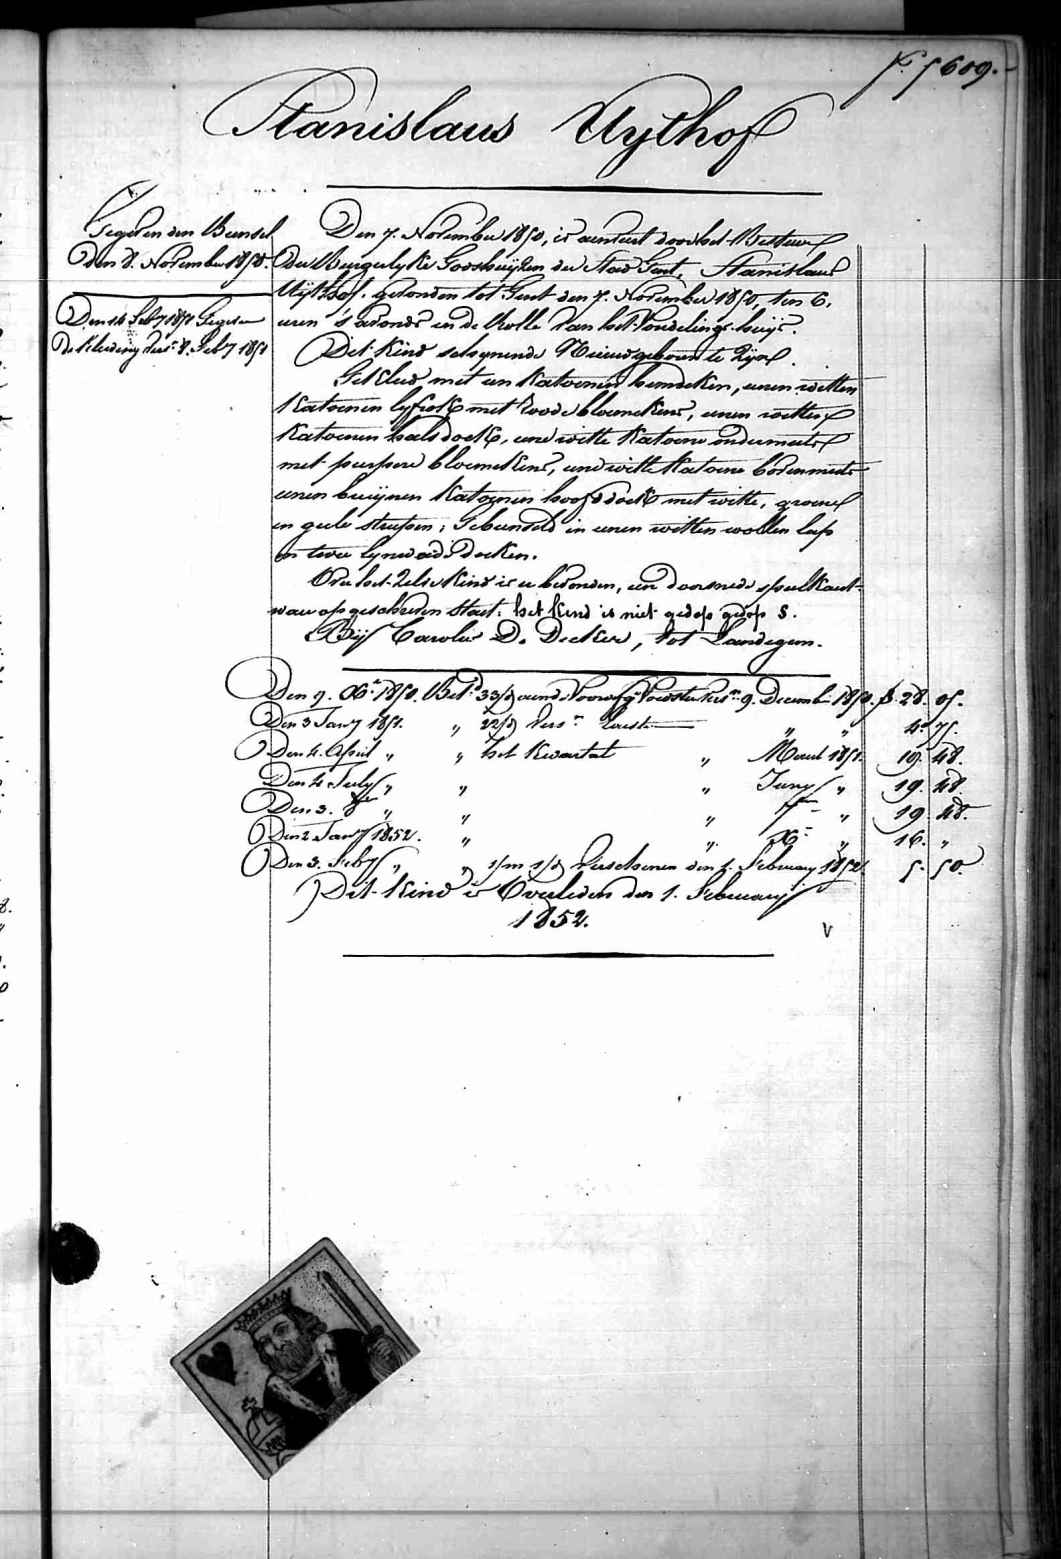 N.° 5609.
Stanislaus Uythof
Gegeven den Bunsel
den 8. November 1850.
Den 14 Feb.y 1851 Gegeven
de Kleeding vers. 8. Feb.y 1851
Den 7. November 1850, is aenveert door het Bestuur
der Burgerlyke Godshuyzen der Stad Gent, Stanislaus
Uythof. gevonden tot Gent den 7. November 1850, ten 6.
uren 's avonds in de Rolle van het Vondelings-huys.
Dit Kind schynende Nieuwgeboren te Zyn.
Gekleed met een Katoenen hemdeken, eenen witten
Katoenen lyfrok met roode bloemekens, eenen witten
Katoenen halsdoek, eene witte Katoene ondermuts
met purpere bloemekens, eene witte Katoene bovenmuts
eenen bruynen Katoenen hoofddoek met witte, groene
en geele streepen; Gebunseld in eenen witten wollen lap
en twee lynwaede doeken.
Over het Zelve Kind is er bevonden, een doorsnede speelkaert
waer op geschreven staet: het kind is niet gedop gedop S.
Bij Carolus De Decker, tot Landegem.
Den 9. Xb.r 1850. Bet.d 33/d aende Voorzg Voedster vers.n 9. Decemb. 1850. f. 28. 05.
Den 3 Jan.y 1851. " 22/d vers.n Laest " " 4. 75.
Den 4. April " " het Kwartal " Maert 1851. 19. 48.
Den 4 July " " " Juny " 19. 48.
Den 3. 8ber " " " 7br " 19. 48.
Den 2 Jan.y 1852. " " Xbr " 16. "
Den 3. Feb.y " " 1/m 1/d verschenen den 1. February 1852. 5. 50.
Dit Kind is Overleden den 1. February
1852.
V